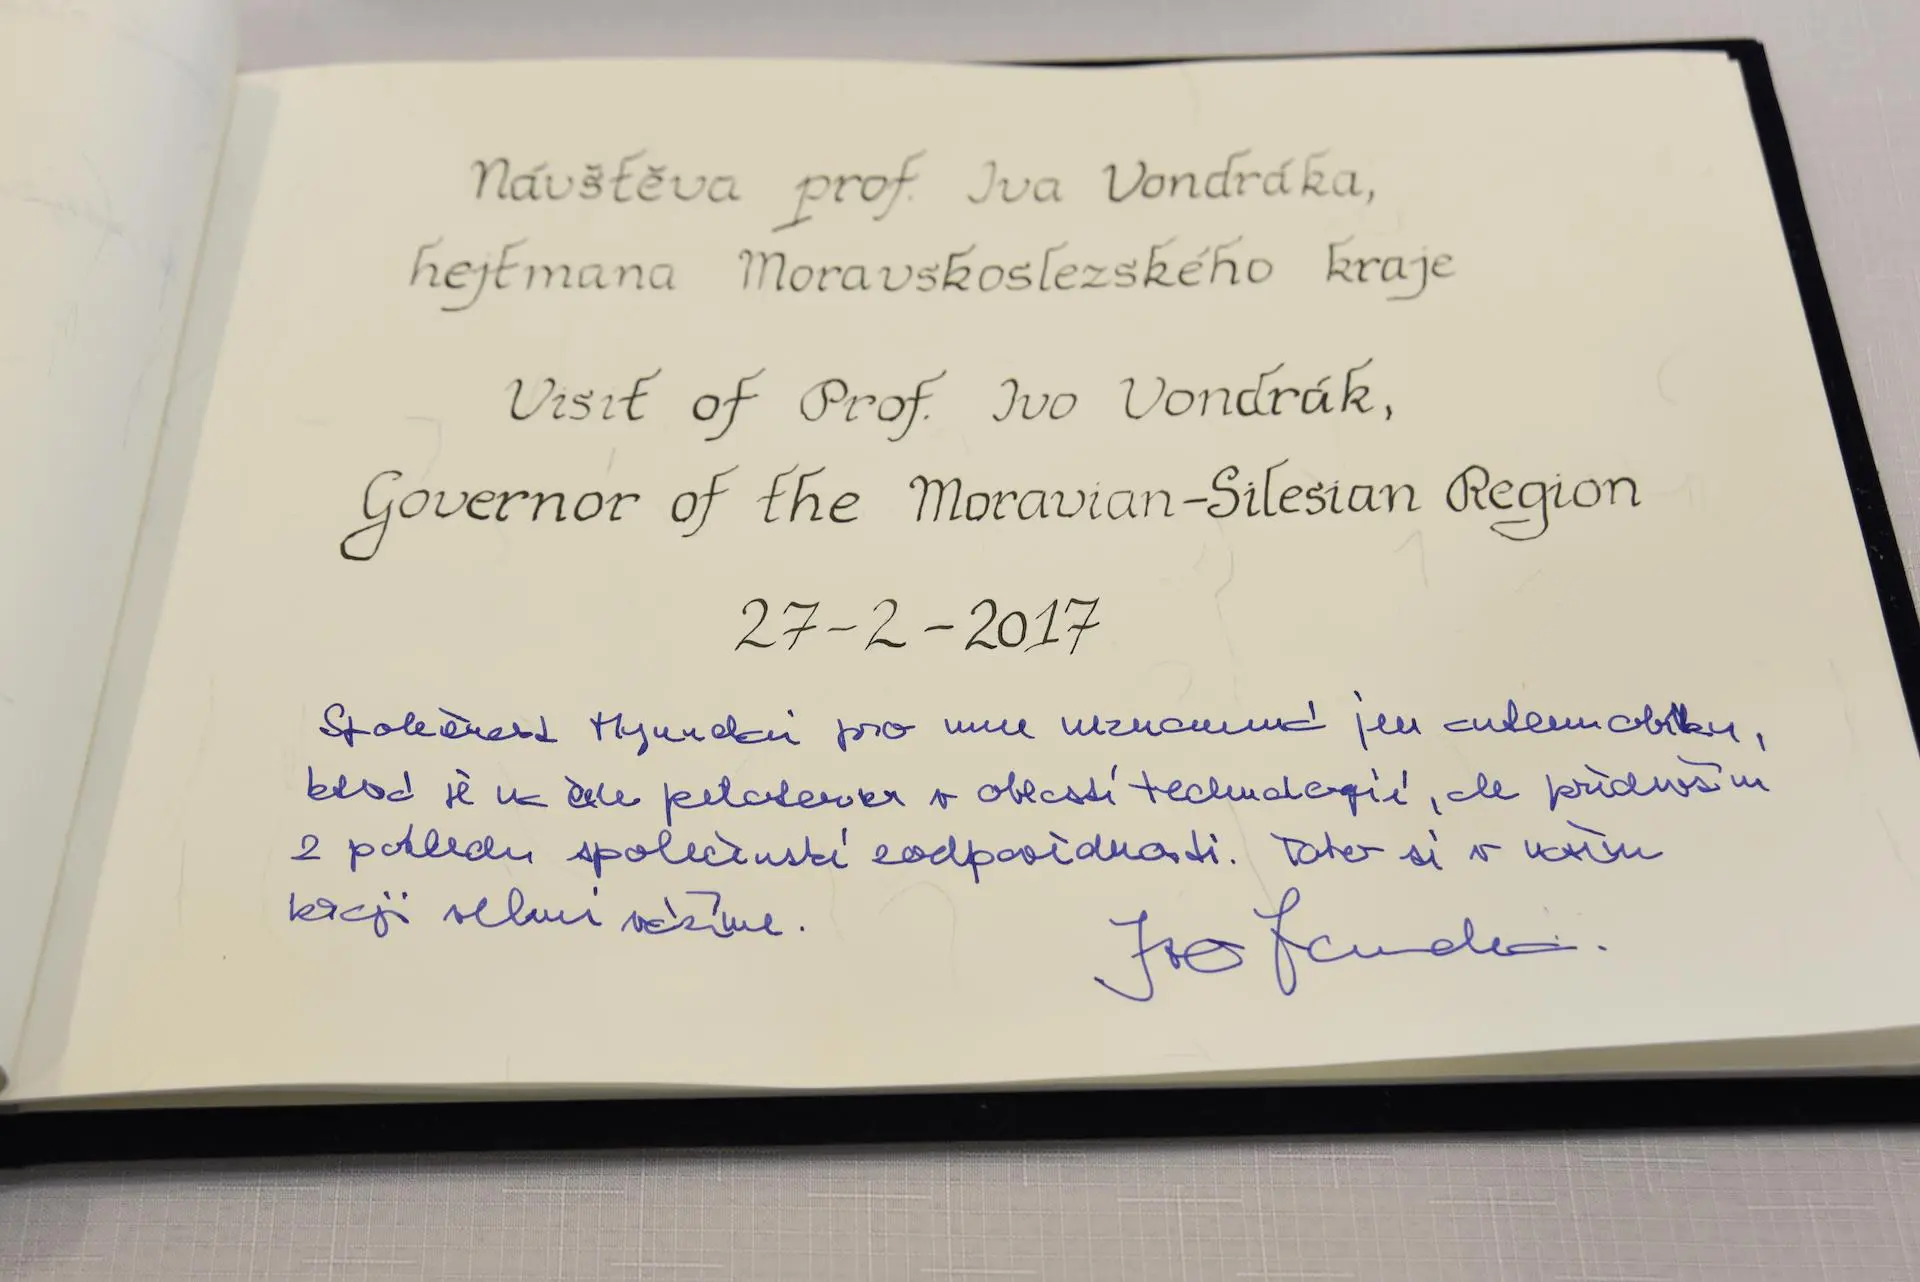 Návštěva prof. Iva Vondráka,
hejtmana Moravskoslezského kraje
Visit of Prof. Ivo Vondrák,
Governor of the Moravian-Silesian Region
27-2-2017
Společnost Hyundai pro mne neznamená jen automobilku,
která je na čele v oblasti technologií, ale především
z pohledu společenské zodpovědnosti. Toho si v našem
kraji velmi vážíme.